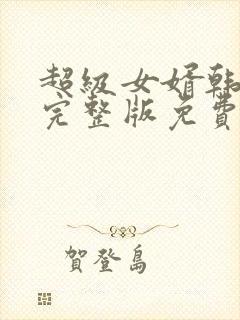 超級女婿韩
完整版免費
賀登島